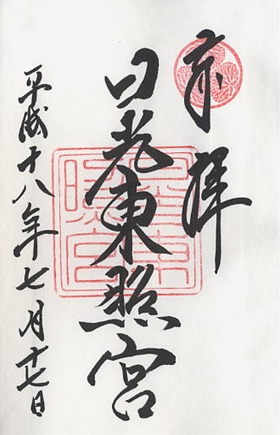 奉拝
日光東照宮
平成十八年七月十七日